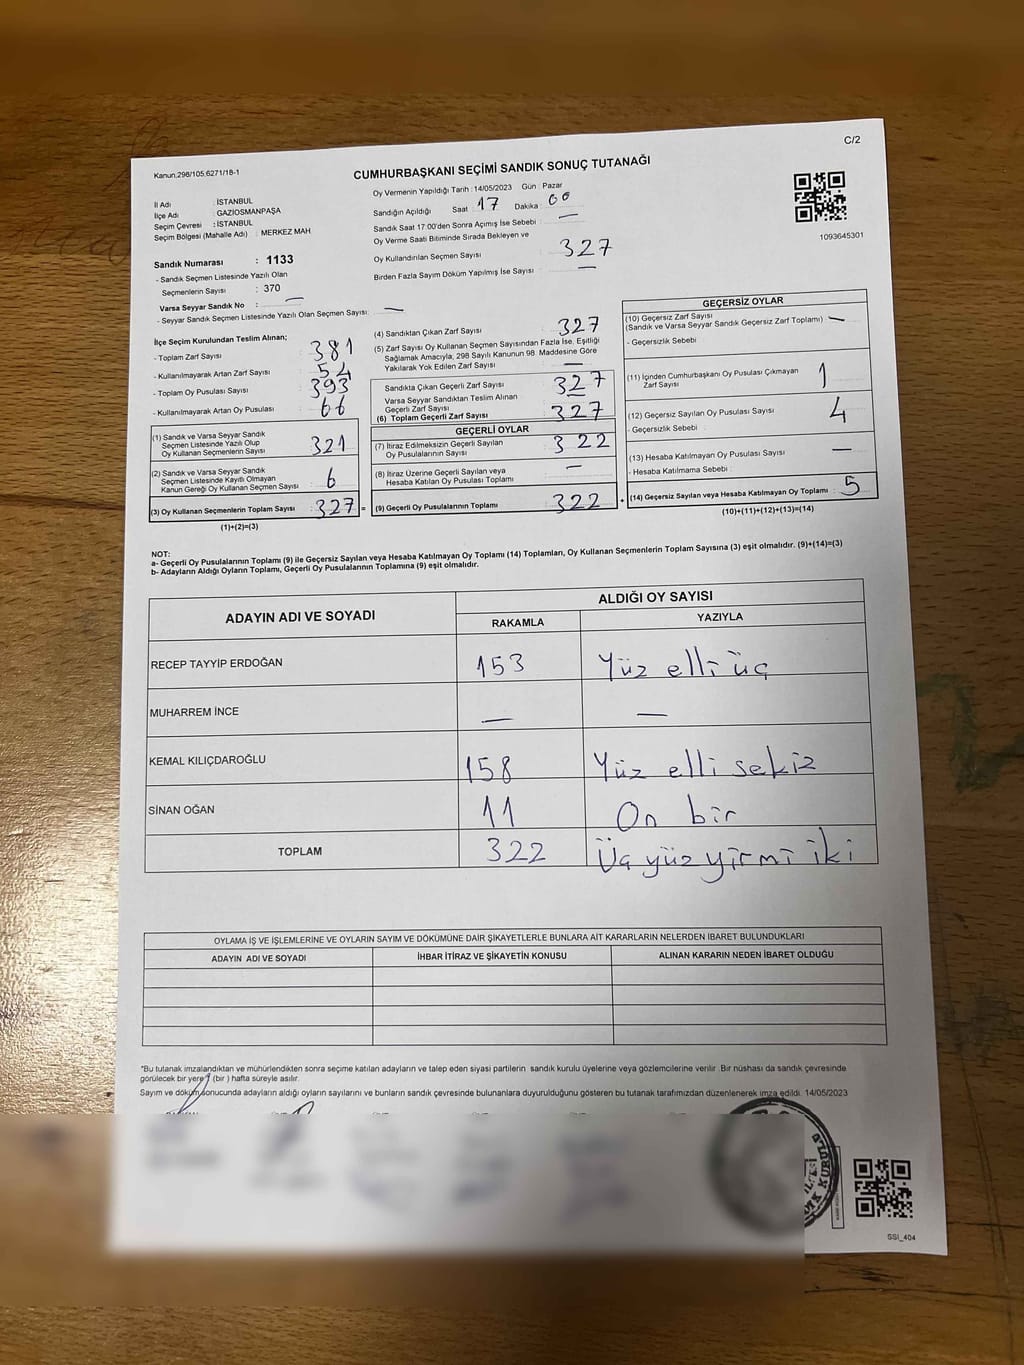 C/2
Kanun.298/105.6271/18-1
CUMHURBAŞKANI SEÇİMİ SANDIK SONUÇ TUTANAĞI
İl Adı : İSTANBUL
İlçe Adı : GAZİOSMANPAŞA
Seçim Çevresi : İSTANBUL
Seçim Bölgesi (Mahalle Adı) : MERKEZ MAH
Sandık Numarası : 1133
- Sandık Seçmen Listesinde Yazılı Olan
Seçmenlerin Sayısı : 370
Varsa Seyyar Sandık No : —
- Seyyar Sandık Seçmen Listesinde Yazılı Olan Seçmen Sayısı: —
Oy Vermenin Yapıldığı Tarih : 14/05/2023 Gün : Pazar
Sandığın Açıldığı Saat : 17 Dakika : 00
Sandık Saat 17:00'den Sonra Açımış İse Sebebi : —
Oy Verme Saati Bitiminde Sırada Bekleyen ve
Oy Kullandırılan Seçmen Sayısı : 327
Birden Fazla Sayım Döküm Yapılmış İse Sayısı : —
1093645301
İlçe Seçim Kurulundan Teslim Alınan;
- Toplam Zarf Sayısı : 381
- Kullanılmayarak Artan Zarf Sayısı : 54
- Toplam Oy Pusulası Sayısı : 393
- Kullanılmayarak Artan Oy Pusulası : 66
(1) Sandık ve Varsa Seyyar Sandık
Seçmen Listesinde Yazılı Olup
Oy Kullanan Seçmenlerin Sayısı : 321
(2) Sandık ve Varsa Seyyar Sandık
Seçmen Listesinde Kayılı Olmayan
Kanun Gereği Oy Kullanan Seçmen Sayısı : 6
(3) Oy Kullanan Seçmenlerin Toplam Sayısı : 327 =
(1)+(2)=(3)
(4) Sandıktan Çıkan Zarf Sayısı : 327
(5) Zarf Sayısı Oy Kullanan Seçmen Sayısından Fazla İse, Eşitliği
Sağlamak Amacıyla, 298 Sayılı Kanunun 98. Maddesine Göre
Yakılarak Yok Edilen Zarf Sayısı : —
Sandıkta Çıkan Geçerli Zarf Sayısı : 327
Varsa Seyyar Sandıktan Teslim Alınan
Geçerli Zarf Sayısı : —
(6) Toplam Geçerli Zarf Sayısı : 327
GEÇERLİ OYLAR
(7) İtiraz Edilmeksizin Geçerli Sayılan
Oy Pusulasının Sayısı : 322
(8) İtiraz Üzerine Geçerli Sayılan veya
Hesaba Katılan Oy Pusulası Toplamı : —
(9) Geçerli Oy Pusulalarının Toplamı : 322 +
GEÇERSİZ OYLAR
(10) Geçersiz Zarf Sayısı
(Sandık ve Varsa Seyyar Sandık Geçersiz Zarf Toplamı) : —
- Geçersizlik Sebebi :
(11) İçinden Cumhurbaşkanı Oy Pusulası Çıkmayan
Zarf Sayısı : 1
(12) Geçersiz Sayılan Oy Pusulası Sayısı : 4
- Geçersizlik Sebebi :
(13) Hesaba Katılmayan Oy Pusulası Sayısı : —
- Hesaba Katılmama Sebebi :
(14) Geçersiz Sayılan veya Hesaba Katılmayan Oy Toplamı : 5
(10)+(11)+(12)+(13)=(14)
NOT:
a- Geçerli Oy Pusulalarının Toplamı (9) ile Geçersiz Sayılan veya Hesaba Katılmayan Oy Toplamı (14) Toplamları, Oy Kullanan Seçmenlerin Toplam Sayısına (3) eşit olmalıdır. (9)+(14)=(3)
b- Adayların Aldığı Oyların Toplamı, Geçerli Oy Pusulalarının Toplamına (9) eşit olmalıdır.
ADAYIN ADI VE SOYADI ALDIĞI OY SAYISI
RAKAMLA YAZIYLA
RECEP TAYYİP ERDOĞAN 153 Yüz elli üç
MUHARREM İNCE — —
KEMAL KILIÇDAROĞLU 158 Yüz elli sekiz
SİNAN OĞAN 11 On bir
TOPLAM 322 Üç yüz yirmi iki
OYLAMA İŞ VE İŞLEMLERİNE VE OYLARIN SAYIM VE DÖKÜMÜNE DAİR ŞİKAYETLERLE BUNLARA AİT KARARLARIN NELERDEN İBARET BULUNDUKLARI
ADAYIN ADI VE SOYADI İHBAR İTİRAZ VE ŞİKAYETİN KONUSU ALINAN KARARIN NEDEN İBARET OLDUĞU
*Bu tutanak imzalandıktan ve mühürlendikten sonra seçime katılan adayların ve talep eden siyasi partilerin sandık kurulu üyelerine veya gözlemcilerine verilir. Bir nüshası da sandık çevresinde
görülecek bir yere 1 (bir ) hafta süreyle asılır.
Sayım ve döküm sonucunda adayların aldığı oyların sayılarını ve bunların sandık çevresinde bulunanlara duyurulduğunu gösteren bu tutanak tarafımızdan düzenlenerek imza edildi. 14/05/2023
SSI_404